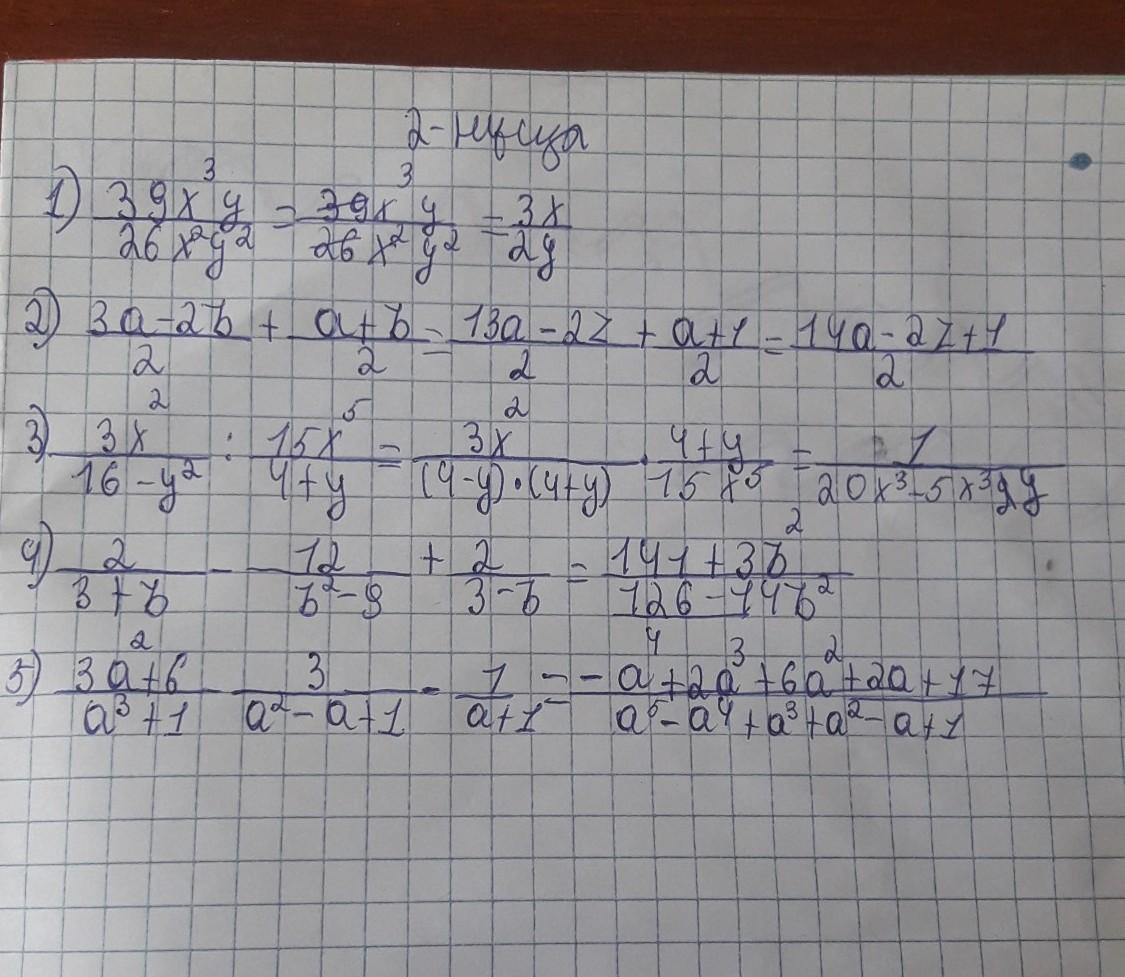 2-нұсқа
1) 39x³y/26x²y² = 39x³y/26x²y² = 3x/2y
2) 3a-2b/2 + a+b/2 = 13a-2z/2 + a+1/2 = 14a-2z+1/2
3) 3x²/16-y² : 15x⁵/4+y = 3x²/(4-y)·(4+y) · 4+y/15x⁵ = 1/20x³-5x³y
4) 2/3+b - 12/b²-9 + 2/3-b = 141+3b²/126-14b²
5) 3a²+6/a³+1 - 3/a²-a+1 - 1/a+1 = -a⁴+2a³+6a²+2a+17/a⁵-a⁴+a³+a²-a+1